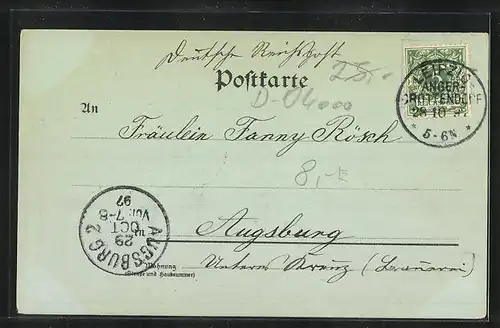 Deutsche Reichspost
Postkarte
25.-
D-04000
LEIPZIG
ANGER-
CROTTENDORF
28 10 97
* 5-6N *
An
Fräulein Fanny Rösch
8,-E
Augsburg
AUGSBURG 2
29
OCT
Vor. 7-8
97
Wohnung
(Straße und Hausnummer)
Unteres Kreuz (Brauerei)